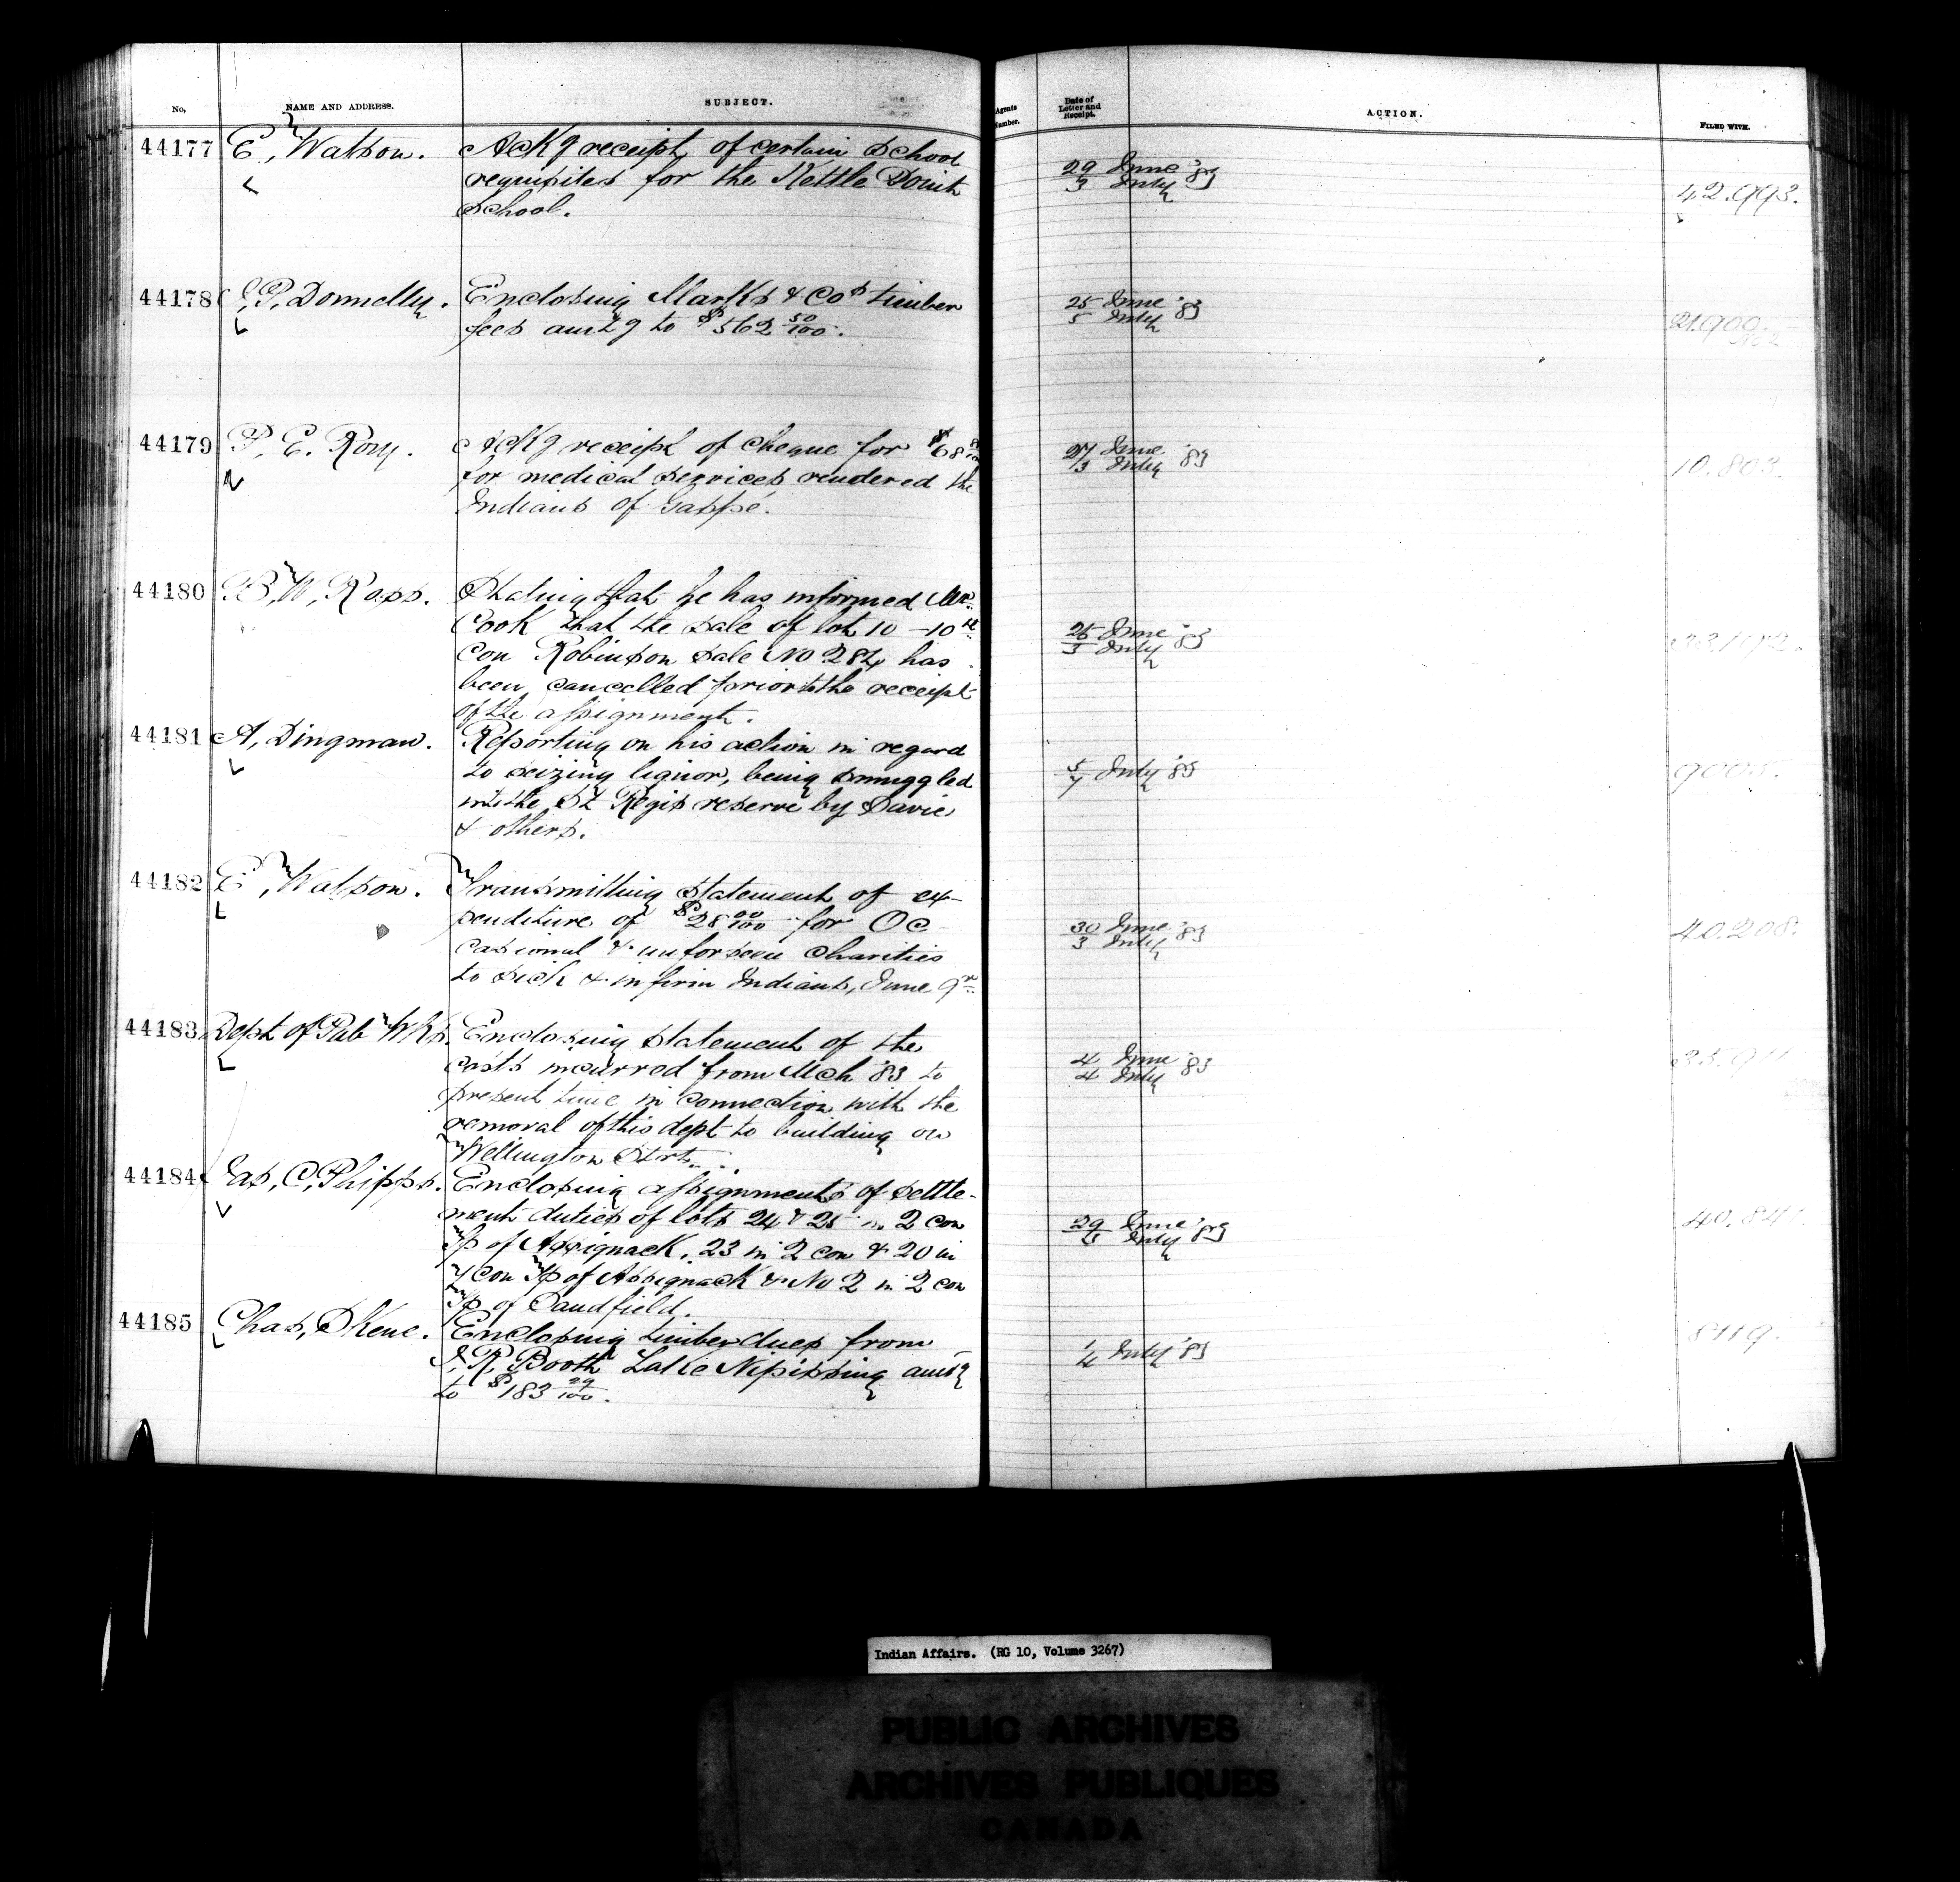 No. NAME AND ADDRESS. SUBJECT. Agents Number. Date of Letter and Receipt. ACTION. FILED WITH.
44177 E, Watson. Ackg receipt of certain School
requisites for the Kettle Point
School.
29 June 3 July '83
42.993.
44178 J, P, Donnelly. Enclosing Marks & Cos timber
fees amtg to $562 50/100.
25 June 5 July '83
21.900
No 2
44179 P, E. Rory. Ackg receipt of cheque for $68
for medical services rendered the
Indians of Gaspé.
27 June 3 July '83
10.803.
44180 B, W, Ross. Stating that he has informed Mr
Cook that the sale of lot 10 – 10th
con Robinson Sale No 284 has
been cancelled prior to the receipt
of the assignment.
25 June 3 July '83
44181 A, Dingman. Reporting on his action in regard
to seizing liquor, being smuggled
into the St Regis reserve by Davie
& others.
5/7 July '83
9005.
44182 E, Watson. Transmitting statement of ex-
penditure of $28 00/100 for Oc-
casional & unforseen Charities
to sick & infirm Indians, June qr
30 June 3 July '83
40.208.
44183 Dept of Pub Wks. Enclosing statement of the
costs incurred from Mch '83 to
present time in connection with the
removal of this dept to building on
Wellington Strt.
4 June 4 July '83
44184 Jas, C, Phipps. Enclosing assignments of settle-
ment duties of lots 24 & 25 in 2 con
Tp of Assignack, 23 in 2 con & 20 in
7 con Tp of Assignack & No 2 in 2 con
Tp of Sandfield.
29 June July '83
44185 Chas, Skene. Enclosing timber dues from
J, R, Booth Lake Nipissing amtg
to $183 29/100.
1/4 July '83
8119.
Indian Affairs. (RG 10, Volume 3267)
PUBLIC ARCHIVES
ARCHIVES PUBLIQUES
CANADA